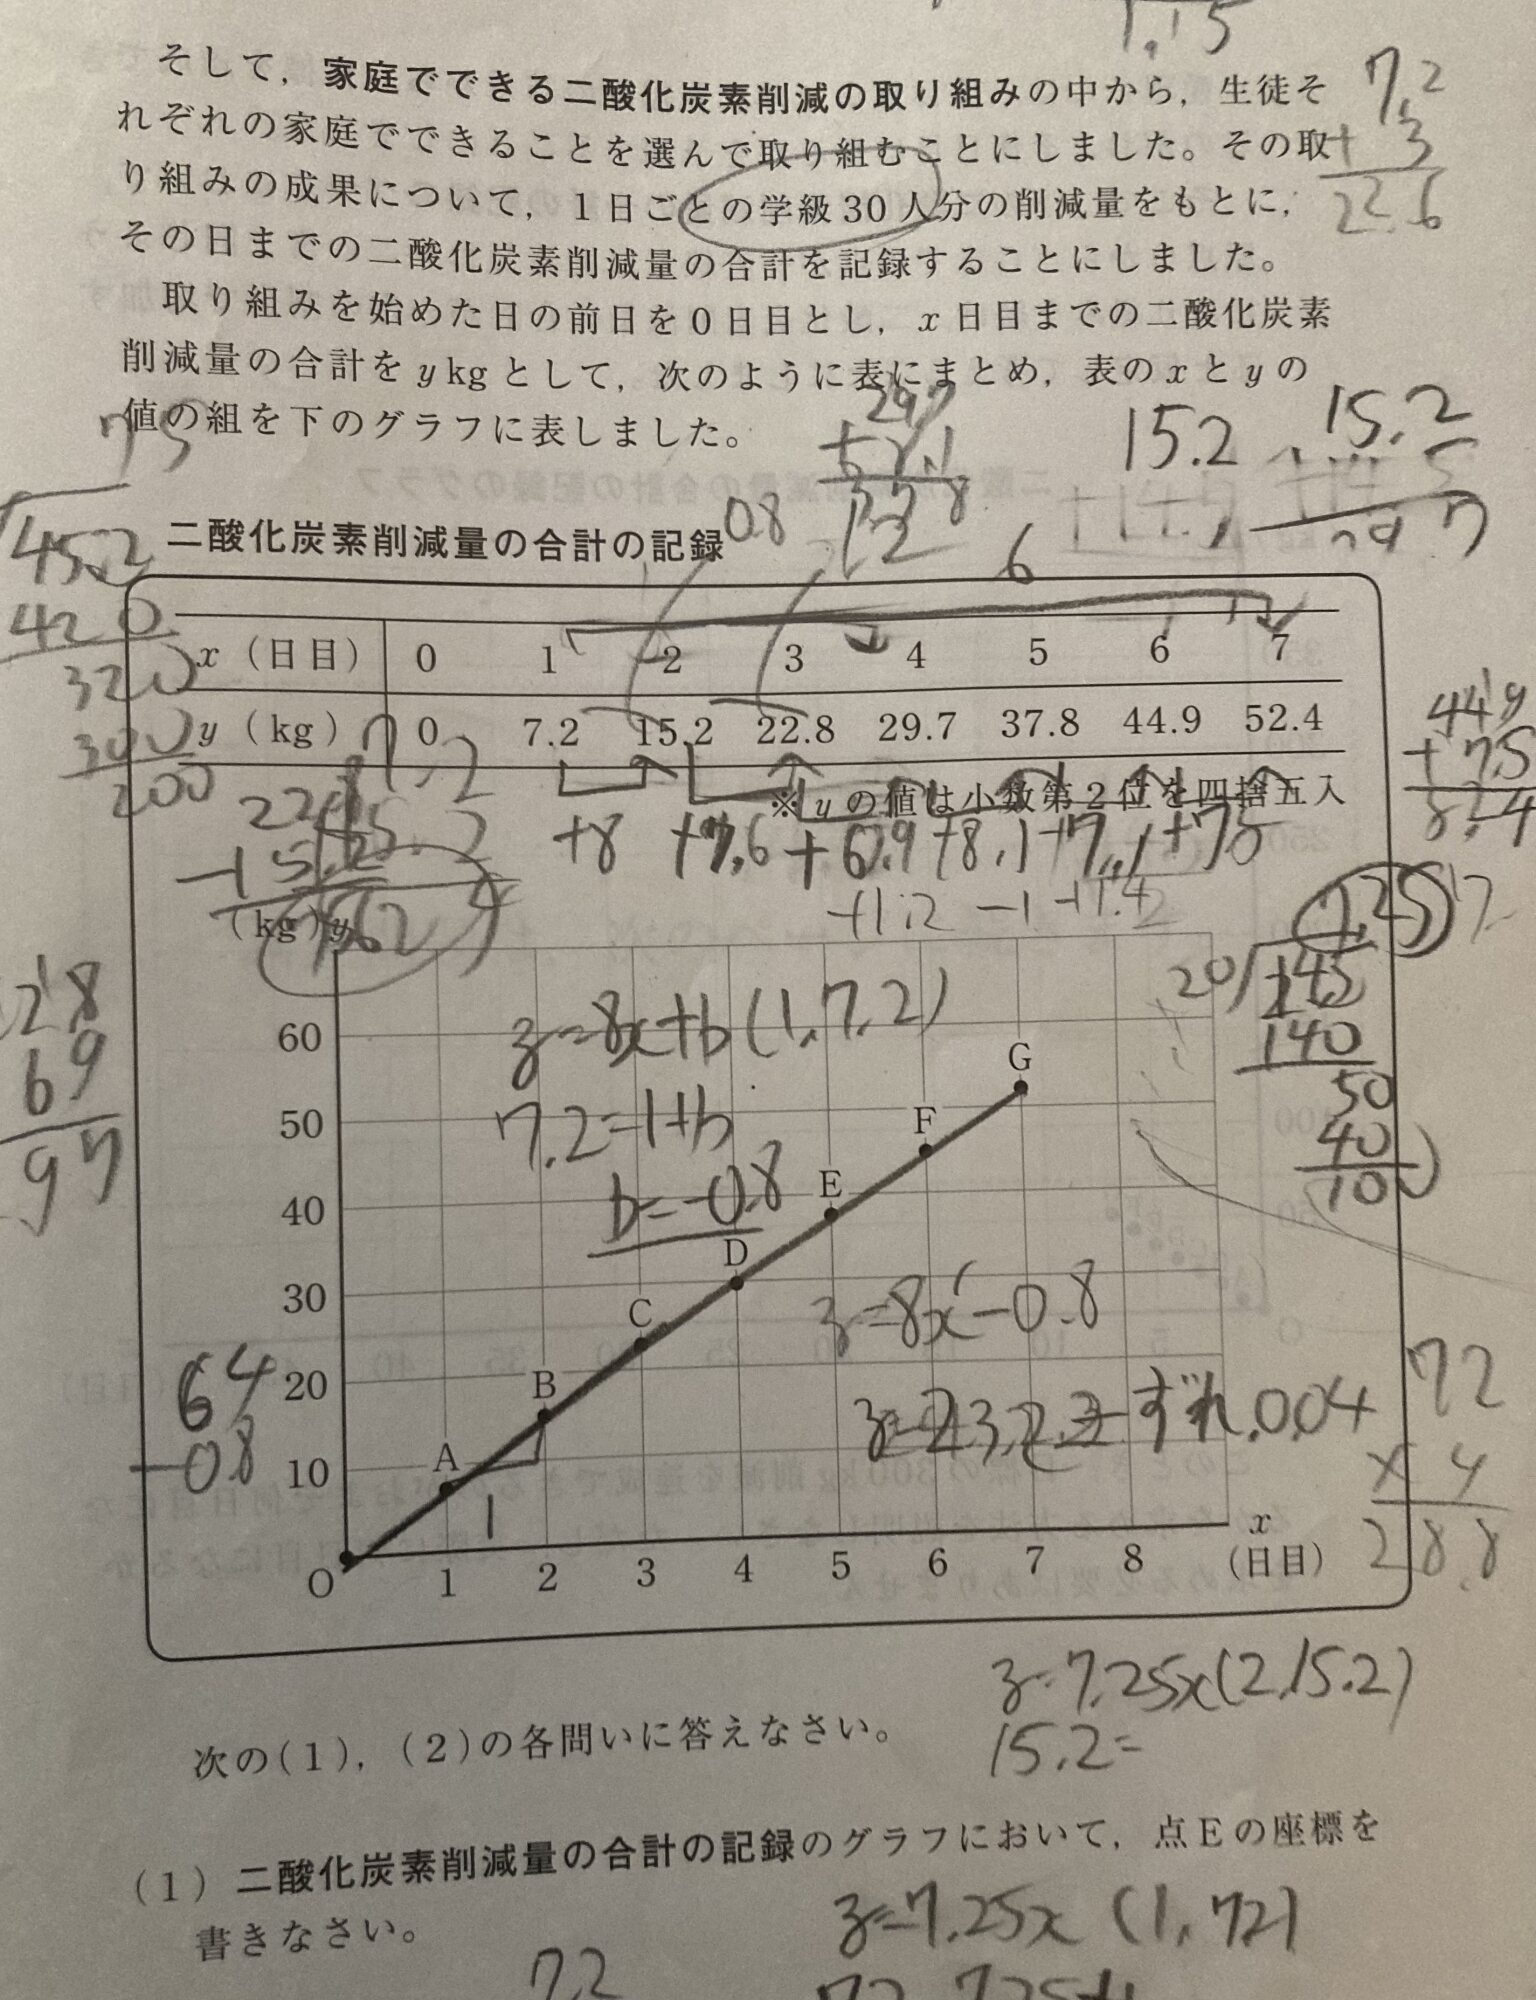 1.15
そして，家庭でできる二酸化炭素削減の取り組みの中から，生徒そ
れぞれの家庭でできることを選んで取り組むことにしました。その取
り組みの成果について，1日ごとの学級30人分の削減量をもとに，
その日までの二酸化炭素削減量の合計を記録することにしました。
取り組みを始めた日の前日を0日目とし，x日目までの二酸化炭素
削減量の合計をykgとして，次のように表にまとめ，表のxとyの
値の組を下のグラフに表しました。
7.2
22.6
75
15.2
15.2
45.2
420
320
300
200
二酸化炭素削減量の合計の記録
0.8
12
6
x（日目） 0 1 2 3 4 5 6 7
y（kg） 0 7.2 15.2 22.8 29.7 37.8 44.9 52.4
※yの値は小数第2位を四捨五入
+8 +7.6 +6.9 +8.1 +7.1 +7.5
(kg) y
60
50
40
30
20
10
O 1 2 3 4 5 6 7 8
x
(日目)
A
B
C
D
E
F
G
y=8x+b (1,7.2)
b=-0.8
y=8x-0.8
ずれ.0.04
1
64
-0.8
28
69
97
20
145
140
50
40
100
72
×4
28.8
y=7.25x(2,15.2)
15.2=
次の(1)，(2)の各問いに答えなさい。
(1) 二酸化炭素削減量の合計の記録のグラフにおいて，点Eの座標を
書きなさい。
y=7.25x (1,72)
72